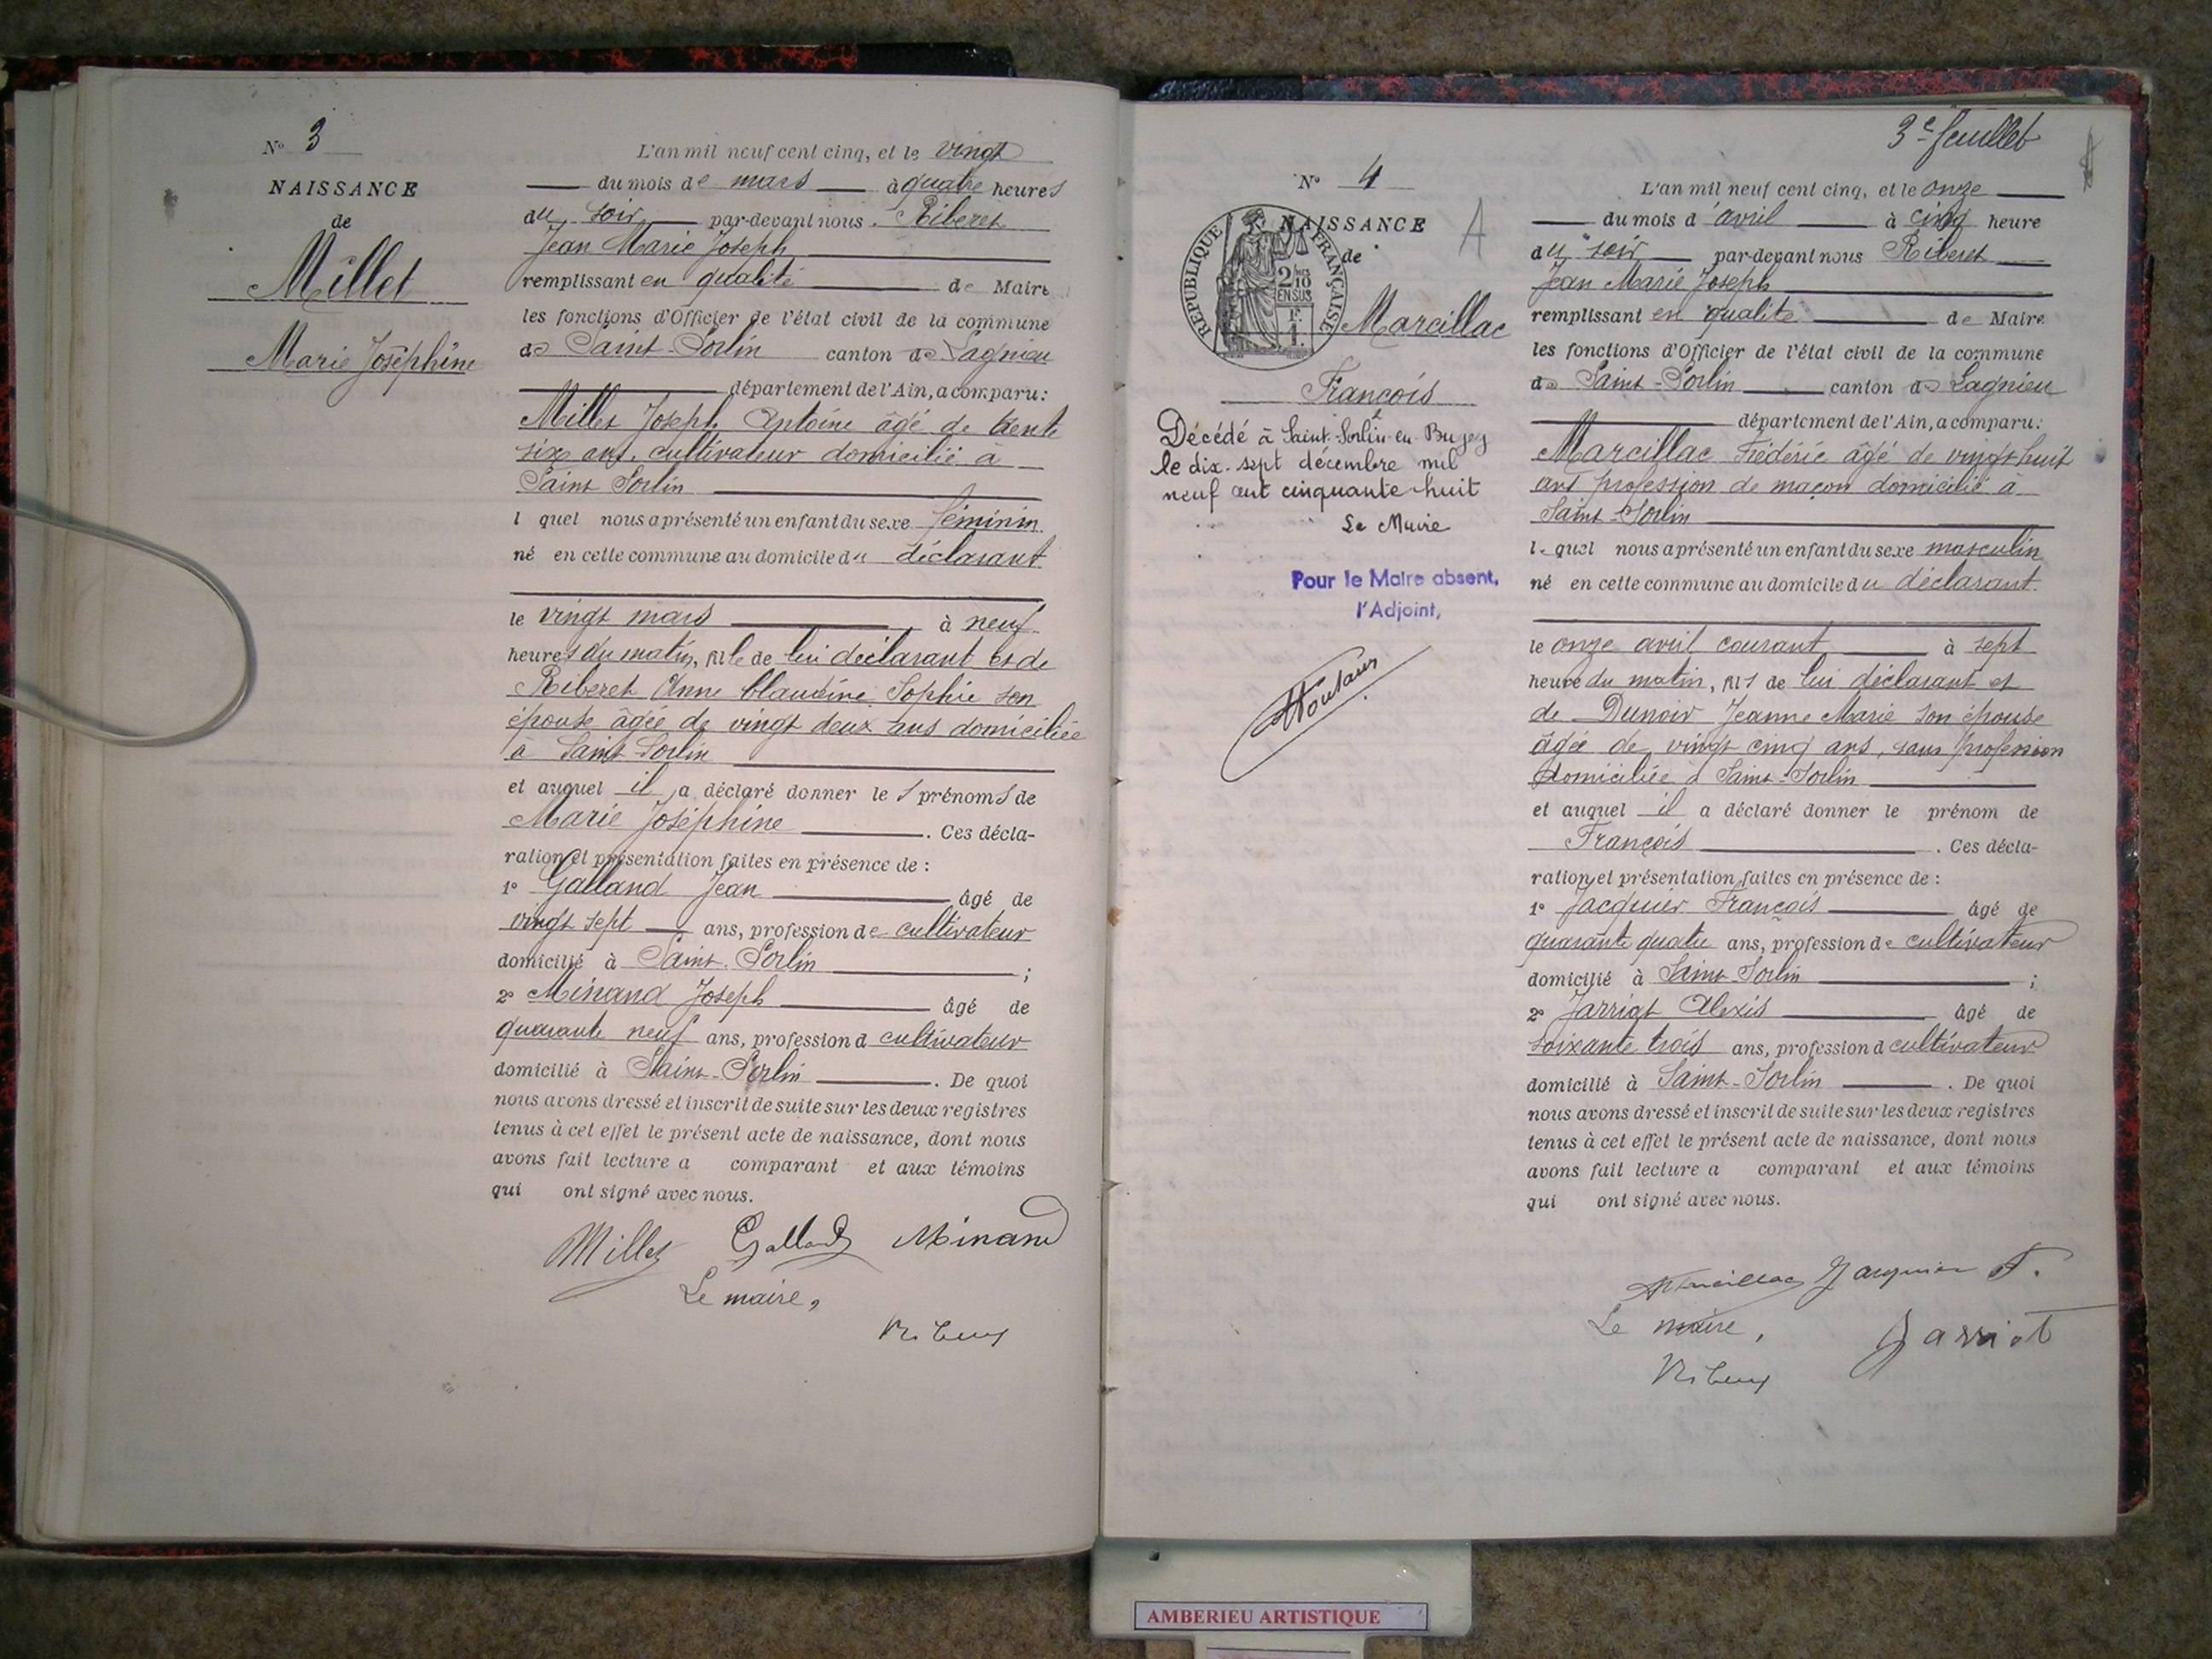 Nº 3
NAISSANCE
de
Millet
Marie Joséphine
L'an mil neuf cent cinq, et le vingt
du mois de mars à quatre heures
du soir par-devant nous Riberet
Jean Marie Joseph
remplissant en qualité de Maire
les fonctions d'Officier de l'état civil de la commune
de Saint-Sorlin canton de Lagnieu
département de l'Ain, a comparu:
Millet Joseph Antoine âgé de trente
six ans, cultivateur domicilié à
Saint Sorlin
l quel nous a présenté un enfant du sexe féminin
né en cette commune au domicile du déclarant
le vingt mars à neuf
heures du matin, fille de lui déclarant et de
Riberet Anne Claudine Sophie son
épouse âgée de vingt deux ans domiciliée
à Saint Sorlin
et auquel il a déclaré donner les prénoms de
Marie Joséphine . Ces décla-
ration et présentation faites en présence de :
1º Galland Jean âgé de
vingt sept ans, profession de cultivateur
domicilié à Saint-Sorlin ;
2º Minand Joseph âgé de
quarante neuf ans, profession d cultivateur
domicilié à Saint-Sorlin . De quoi
nous avons dressé et inscrit de suite sur les deux registres
tenus à cet effet le présent acte de naissance, dont nous
avons fait lecture a comparant et aux témoins
qui ont signé avec nous.
Millet Galland Minand
Le maire,
Riberet
3e feuillet
Nº 4
NAISSANCE
de
A
RÉPUBLIQUE FRANÇAISE
2/10
EN SUS
Marcillac
François
Décédé à Saint-Sorlin-en-Bugey
le dix-sept décembre mil
neuf cent cinquante-huit
Le Maire
Pour le Maire absent,
l'Adjoint,
L'an mil neuf cent cinq, et le onze
du mois d'avril à cinq heure
du soir par-devant nous Riberet
Jean Marie Joseph
remplissant en qualité de Maire
les fonctions d'Officier de l'état civil de la commune
de Saint-Sorlin canton de Lagnieu
département de l'Ain, a comparu:
Marcillac Frédéric âgé de vingt huit
ans profession de maçon domicilié à
Saint-Sorlin
lequel nous a présenté un enfant du sexe masculin
né en cette commune au domicile du déclarant
le onze avril courant à sept
heure du matin, fils de lui déclarant et
de Dunoir Jeanne Marie son épouse
âgée de vingt cinq ans, sans profession
domiciliée à Saint-Sorlin
et auquel il a déclaré donner le prénom de
François . Ces décla-
ration et présentation faites en présence de :
1º Jacquier François âgé de
quarante quatre ans, profession de cultivateur
domicilié à Saint-Sorlin ;
2º Jarriot Alexis âgé de
soixante trois ans, profession d cultivateur
domicilié à Saint-Sorlin . De quoi
nous avons dressé et inscrit de suite sur les deux registres
tenus à cet effet le présent acte de naissance, dont nous
avons fait lecture a comparant et aux témoins
qui ont signé avec nous.
Marcillac Jacquier F.
Le maire, Jarriot
Riberet
AMBERIEU ARTISTIQUE